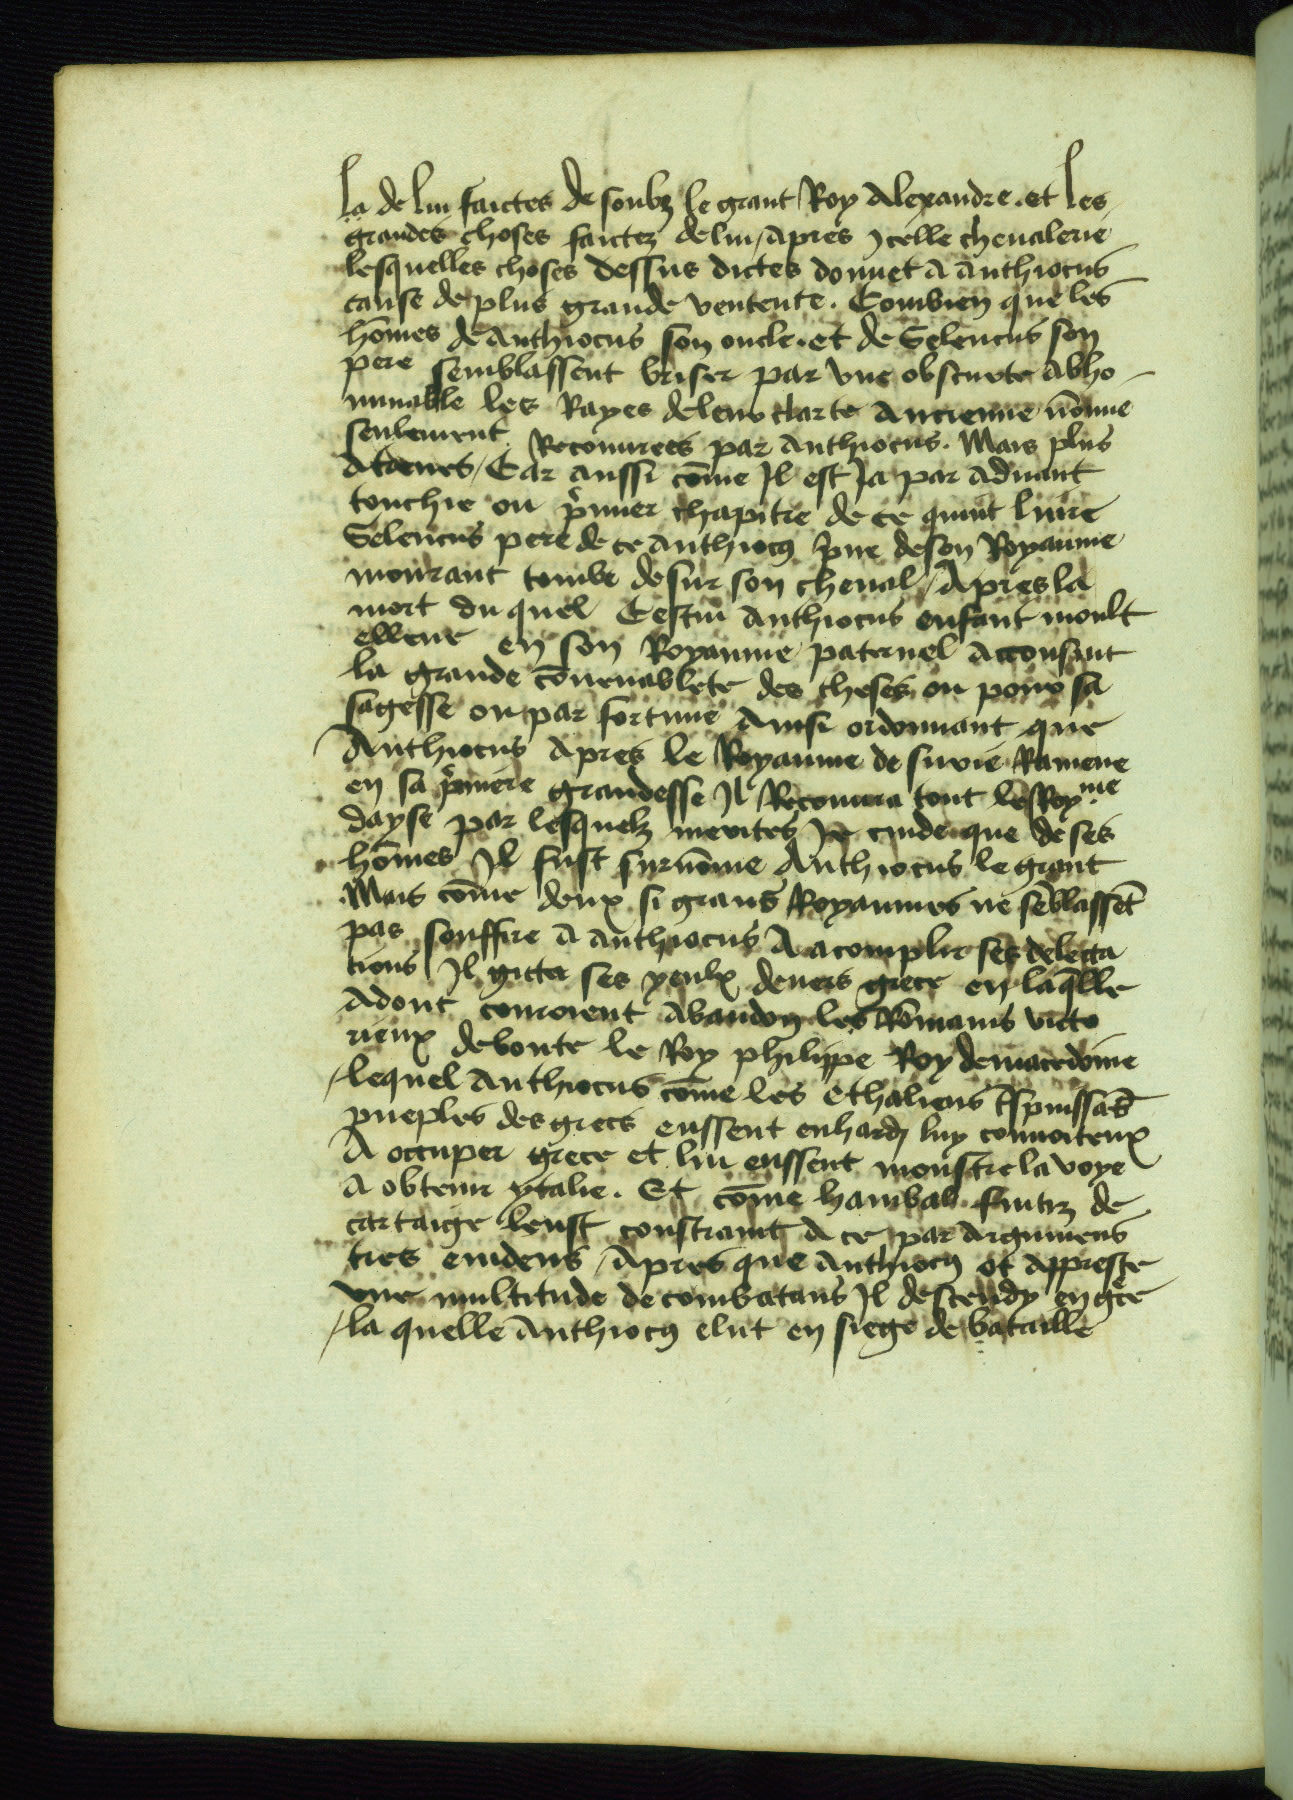 la de lui faictes de soubz le grant Roy Alexandre. et les
grandes choses faictez de lui / apres ycelle cheualerie
lesquelles choses dessus dictes donnet a anthiocus
cause de plus grande ventente. Combien que les
hom̄es de Anthiocus son oncle. et de Seleucus son
pere semblassent briser par vne obscurte abho-
minable les Rayes de leur clarte ancienne nōnme
seulement Recouurees par Anthiocus. Mais plus
Car aussi com̄e Il est Ja par aduant
touchie ou p̄mier chapitre de ce quint liure
Seleucus pere de ce anthiocꝰ de son Royaume
mourant tombe desur son cheual / Apres la
mort du quel Cestui Anthiocus enfant moult
esleue en son Royaume paternel aconsiut
la grande cōuenablete des choses ou pour sa
sagesse ou par fortune Ainsi ordonnant que
Anthiocus apres le Royaume de surie Ramene
en sa p̄miere grandesse Il Recouura tout le Royme
dayse par lesquelz merites Je cuide que de ses
hom̄es Il fust surnōme Anthiocus le grant
Mais com̄e deux si grans Royaumes ne sēblassēt
pas souffire a anthiocus A acomplir ses delecta
tions Il gitta ses yeulx deuers grece en laq̄lle
adont couroient abandon les Rōmains victo
rieux deboute le Roy philippe Roy de macedoine
/ lequel Anthiocus com̄e les Ethaliens t̄spuissās
pueples des grecs eussent enhardy luy conuoiteux
A occuper grece et lui eussent monstre la voye
a obtenir ytalie. Et com̄e hanibal fuitiz de
cartaige leust constraint a ce par argumens
tres euidens / Apres que anthiocꝰ ot appreste
vne multitude de combatans Il descendy en g̊ce
/ la quelle Anthiocꝰ elut en siege de bataille